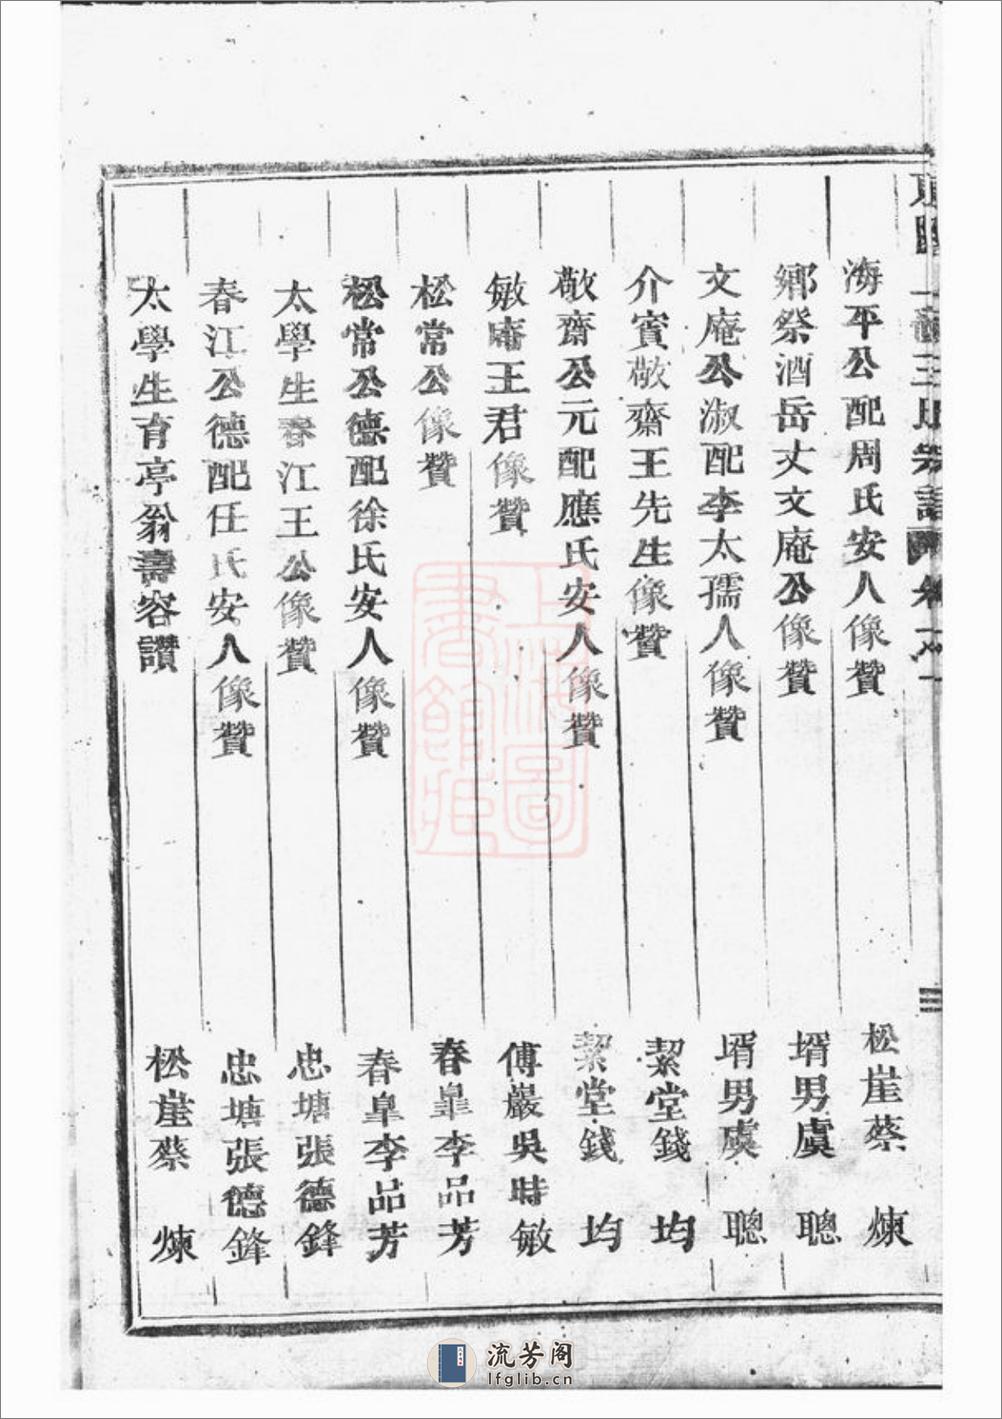 海平公配周氏安人像贊 松崖蔡 煉
鄉祭酒岳丈文庵公像贊 壻男虞 聰
文庵公淑配李太孺人像贊 壻男虞 聰
介賓敬齋王先生像贊 絜堂錢 均
敬齋公元配應氏安人像贊 絜堂錢 均
敏庵王君像贊 傅巖吳時敏
松常公像贊 春皐李品芳
松常公德配徐氏安人像贊 春皐李品芳
太學生春江王公像贊 忠塘張德鋒
春江公德配任氏安人像贊 忠塘張德鋒
太學生育亭翁壽容讚 松崖蔡 煉
上海圖
書館藏
流芳阁
lfglib.cn